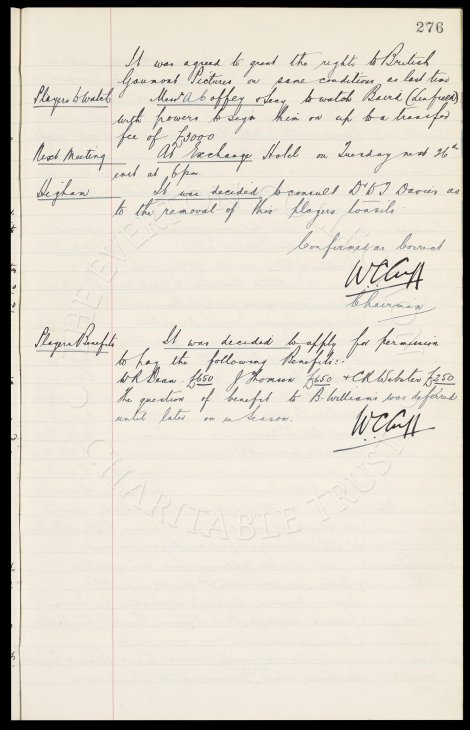 276
It was agreed to grant the rights to British
Gaumont Pictures on same conditions as last time
Players to Watch Messrs A Coffey & Secy to watch Baird (Linfield)
with powers to sign him on up to a transfer
fee of £3000
Next Meeting At Exchange Hotel on Tuesday next 26th
inst at 6pm.
Higham It was decided to consult Dr Davies as
to the removal of this players tonsils
Confirmed as Correct
W.C. Cuff
Chairman
Players Benefits It was decided to apply for permission
to pay the following Benefits:-
W R Dean £650 J Thomson £650 & C R Webster £250
the question of benefit to B. Williams was deferred
until later on in Season.
W.C. Cuff
THE EVERTON
CHARITABLE TRUST